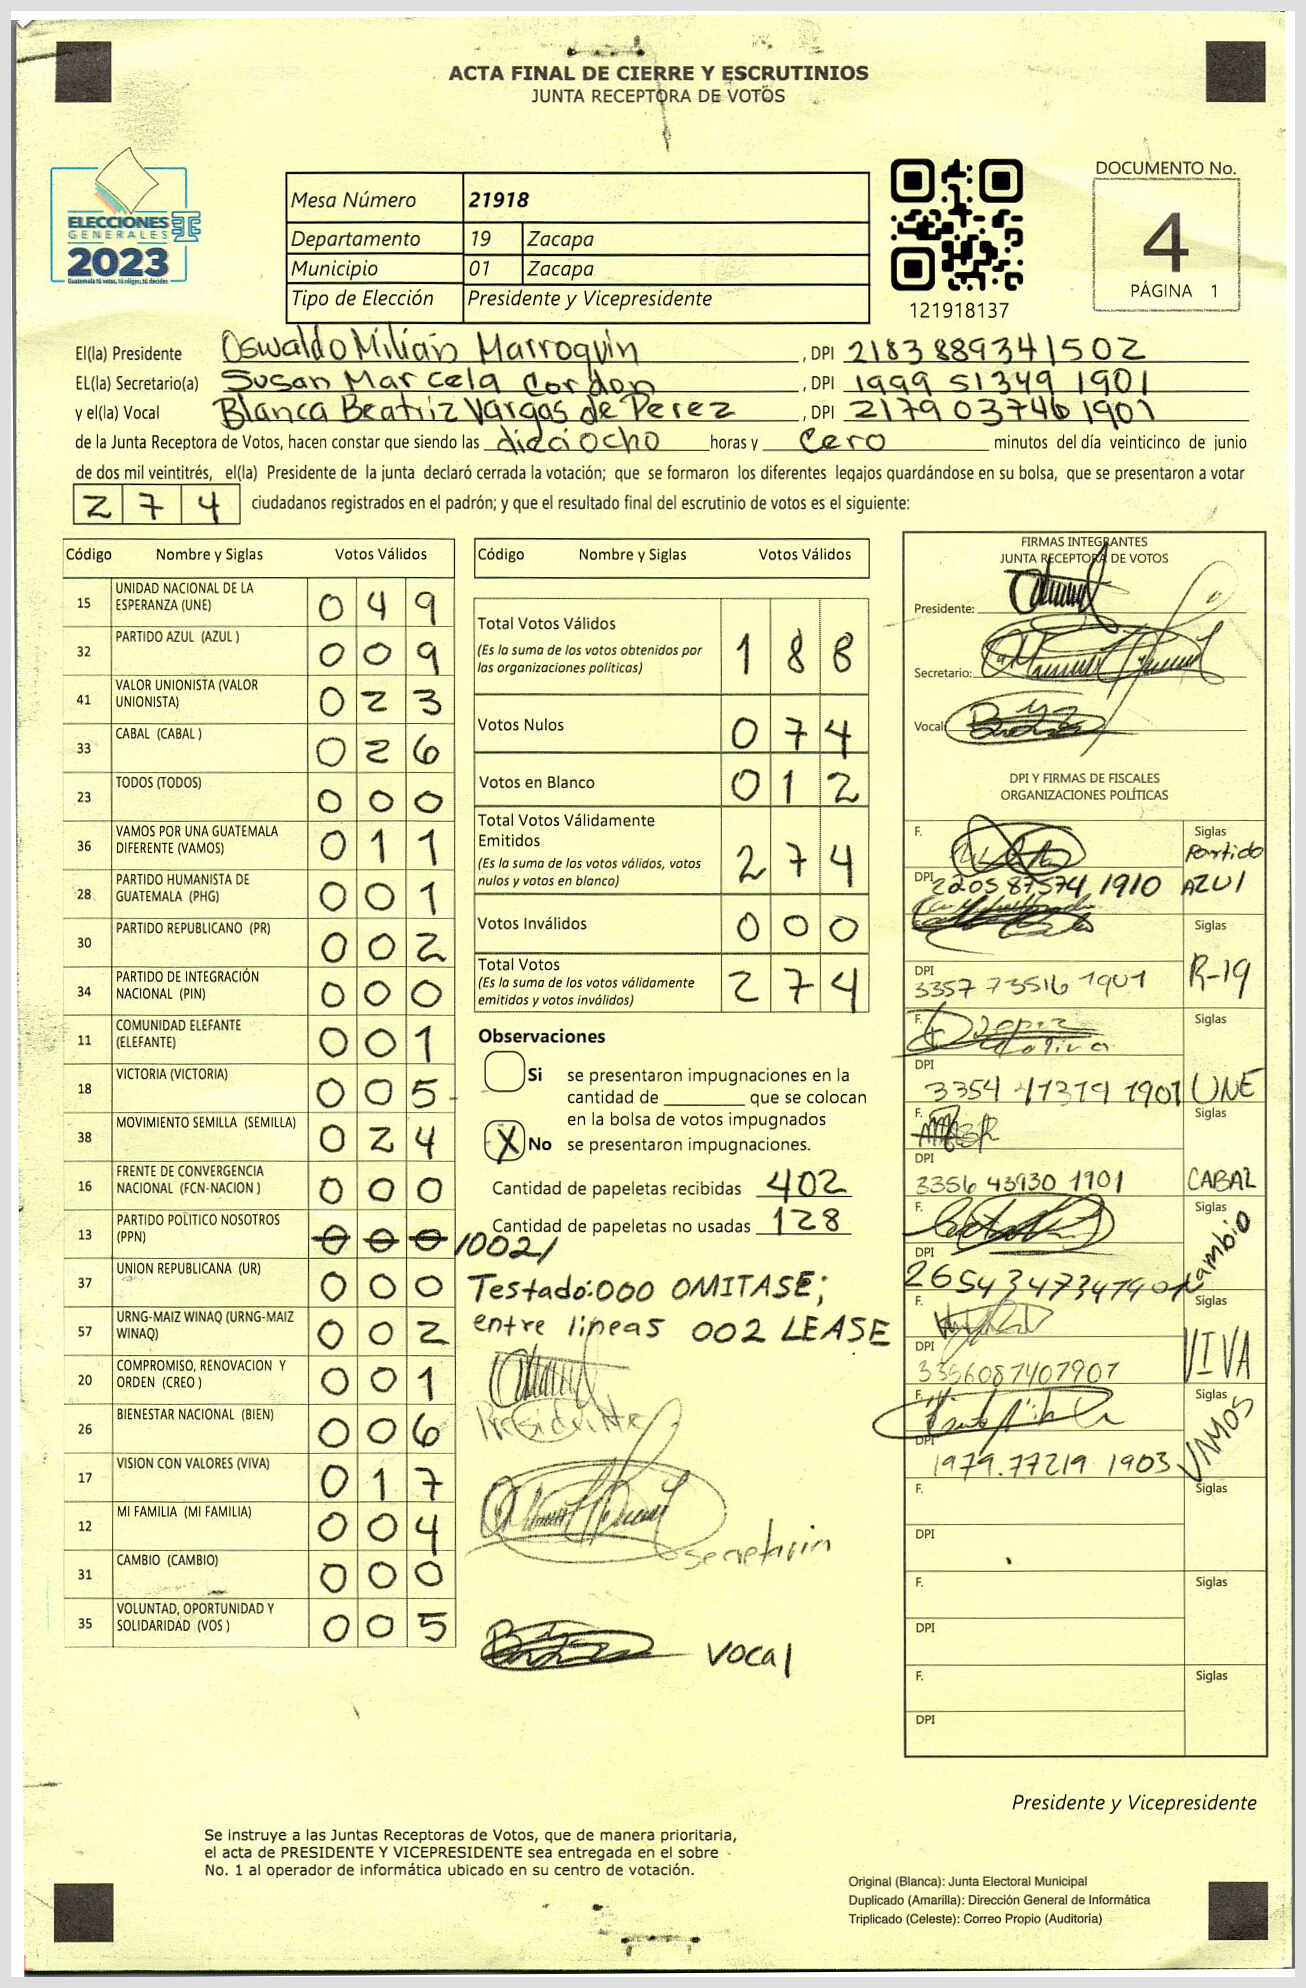 ACTA FINAL DE CIERRE Y ESCRUTINIOS
JUNTA RECEPTORA DE VOTOS
ELECCIONES
GENERALES
2023
Guatemala tú votas, tú eliges, tú decides
Mesa Número 21918
Departamento 19 Zacapa
Municipio 01 Zacapa
Tipo de Elección Presidente y Vicepresidente
121918137
DOCUMENTO No.
4
PÁGINA 1
El(la) Presidente Oswaldo Milián Marroquin , DPI 2183 889341502
EL(la) Secretario(a) Susan Marcela Cordon , DPI 1999 51349 1901
y el(la) Vocal Blanca Beatriz Vargas de Perez , DPI 2179 03746 1901
de la Junta Receptora de Votos, hacen constar que siendo las dieciocho horas y cero minutos del día veinticinco de junio
de dos mil veintitrés, el(la) Presidente de la junta declaró cerrada la votación; que se formaron los diferentes legajos guardándose en su bolsa, que se presentaron a votar
274 ciudadanos registrados en el padrón; y que el resultado final del escrutinio de votos es el siguiente:
Código Nombre y Siglas Votos Válidos
15 UNIDAD NACIONAL DE LA ESPERANZA (UNE) 049
32 PARTIDO AZUL (AZUL ) 009
41 VALOR UNIONISTA (VALOR UNIONISTA) 023
33 CABAL (CABAL ) 026
23 TODOS (TODOS) 000
36 VAMOS POR UNA GUATEMALA DIFERENTE (VAMOS) 011
28 PARTIDO HUMANISTA DE GUATEMALA (PHG) 001
30 PARTIDO REPUBLICANO (PR) 002
34 PARTIDO DE INTEGRACIÓN NACIONAL (PIN) 000
11 COMUNIDAD ELEFANTE (ELEFANTE) 001
18 VICTORIA (VICTORIA) 005
38 MOVIMIENTO SEMILLA (SEMILLA) 024
16 FRENTE DE CONVERGENCIA NACIONAL (FCN-NACION ) 000
13 PARTIDO POLITICO NOSOTROS (PPN) 000 /002/
37 UNION REPUBLICANA (UR) 000
57 URNG-MAIZ WINAQ (URNG-MAIZ WINAQ) 002
20 COMPROMISO, RENOVACION Y ORDEN (CREO ) 001
26 BIENESTAR NACIONAL (BIEN) 006
17 VISION CON VALORES (VIVA) 017
12 MI FAMILIA (MI FAMILIA) 004
31 CAMBIO (CAMBIO) 000
35 VOLUNTAD, OPORTUNIDAD Y SOLIDARIDAD (VOS ) 005
Código Nombre y Siglas Votos Válidos
Total Votos Válidos 188
(Es la suma de los votos obtenidos por
las organizaciones políticas)
Votos Nulos 074
Votos en Blanco 012
Total Votos Válidamente
Emitidos 274
(Es la suma de los votos válidos, votos
nulos y votos en blanco)
Votos Inválidos 000
Total Votos 274
(Es la suma de los votos válidamente
emitidos y votos inválidos)
Observaciones
Si se presentaron impugnaciones en la
cantidad de ________ que se colocan
en la bolsa de votos impugnados
X No se presentaron impugnaciones.
Cantidad de papeletas recibidas 402
Cantidad de papeletas no usadas 128
Testado:000 OMITASE;
entre lineas 002 LEASE
Presidente
Secretaria
Vocal
FIRMAS INTEGRANTES
JUNTA RECEPTORA DE VOTOS
Presidente:
Secretario:
Vocal
DPI Y FIRMAS DE FISCALES
ORGANIZACIONES POLÍTICAS
F. Siglas
Partido
DPI 2205 87574 1910 AZUL
Siglas
DPI R-19
3357 73516 1901
F. Siglas
DPI
3354 41319 1901 UNE
F. Siglas
DPI
3356 43930 1901 CABAL
F. Siglas
DPI Cambio
F. Siglas
DPI VIVA
3356087407907
F. Siglas
DPI VAMOS
1979.77219 1903
F. Siglas
DPI
F. Siglas
DPI
F. Siglas
DPI
Presidente y Vicepresidente
Se instruye a las Juntas Receptoras de Votos, que de manera prioritaria,
el acta de PRESIDENTE Y VICEPRESIDENTE sea entregada en el sobre
No. 1 al operador de informática ubicado en su centro de votación.
Original (Blanca): Junta Electoral Municipal
Duplicado (Amarilla): Dirección General de Informática
Triplicado (Celeste): Correo Propio (Auditoría)